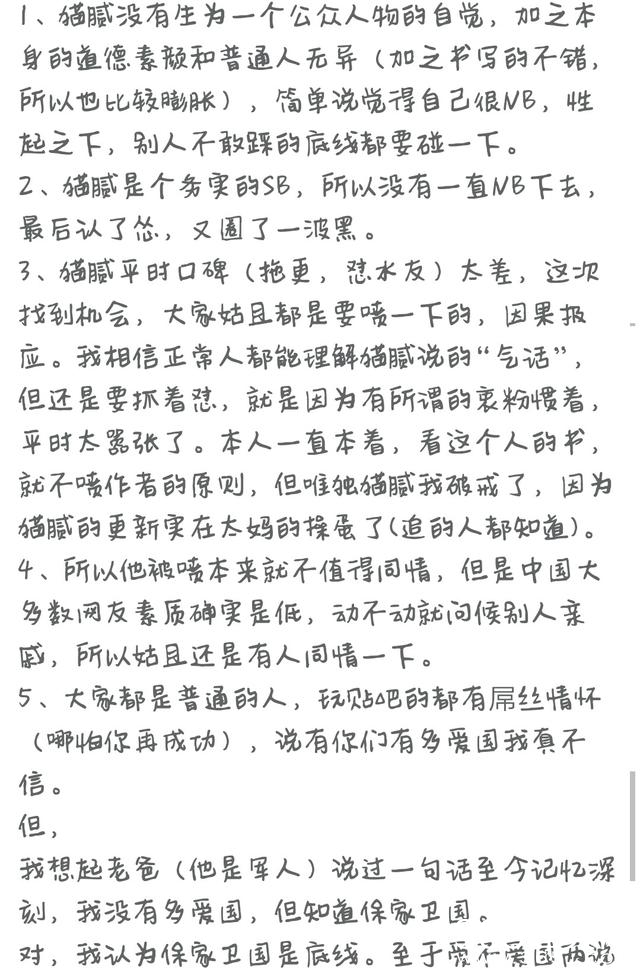 1、猫腻没有生为一个公众人物的自觉，加之本
身的道德素颜和普通人无异（加之书写的不错，
所以也比较膨胀），简单说觉得自己很NB，性
起之下，别人不敢踩的底线都要碰一下。
2、猫腻是个务实的SB，所以没有一直NB下去，
最后认了怂，又圈了一波黑。
3、猫腻平时口碑（拖更，怼水友）太差，这次
找到机会，大家姑且都是要喷一下的，因果报
应。我相信正常人都能理解猫腻说的“气话”，
但还是要抓着怼，就是因为有所谓的衷粉惯着，
平时太嚣张了。本人一直本着，看这个人的书，
就不喷作者的原则，但唯独猫腻我破戒了，因为
猫腻的更新实在太妈的操蛋了(追的人都知道)。
4、所以他被喷本来就不值得同情，但是中国大
多数网友素质确实是低，动不动就问候别人亲
戚，所以姑且还是有人同情一下。
5、大家都是普通的人，玩贴吧的都有屌丝情怀
（哪怕你再成功），说有你们有多爱国我真不
信。
但，
我想起老爸（他是军人）说过一句话至今记忆深
刻，我没有多爱国，但知道保家卫国。
对，我认为保家卫国是底线。至于爱不爱国两说